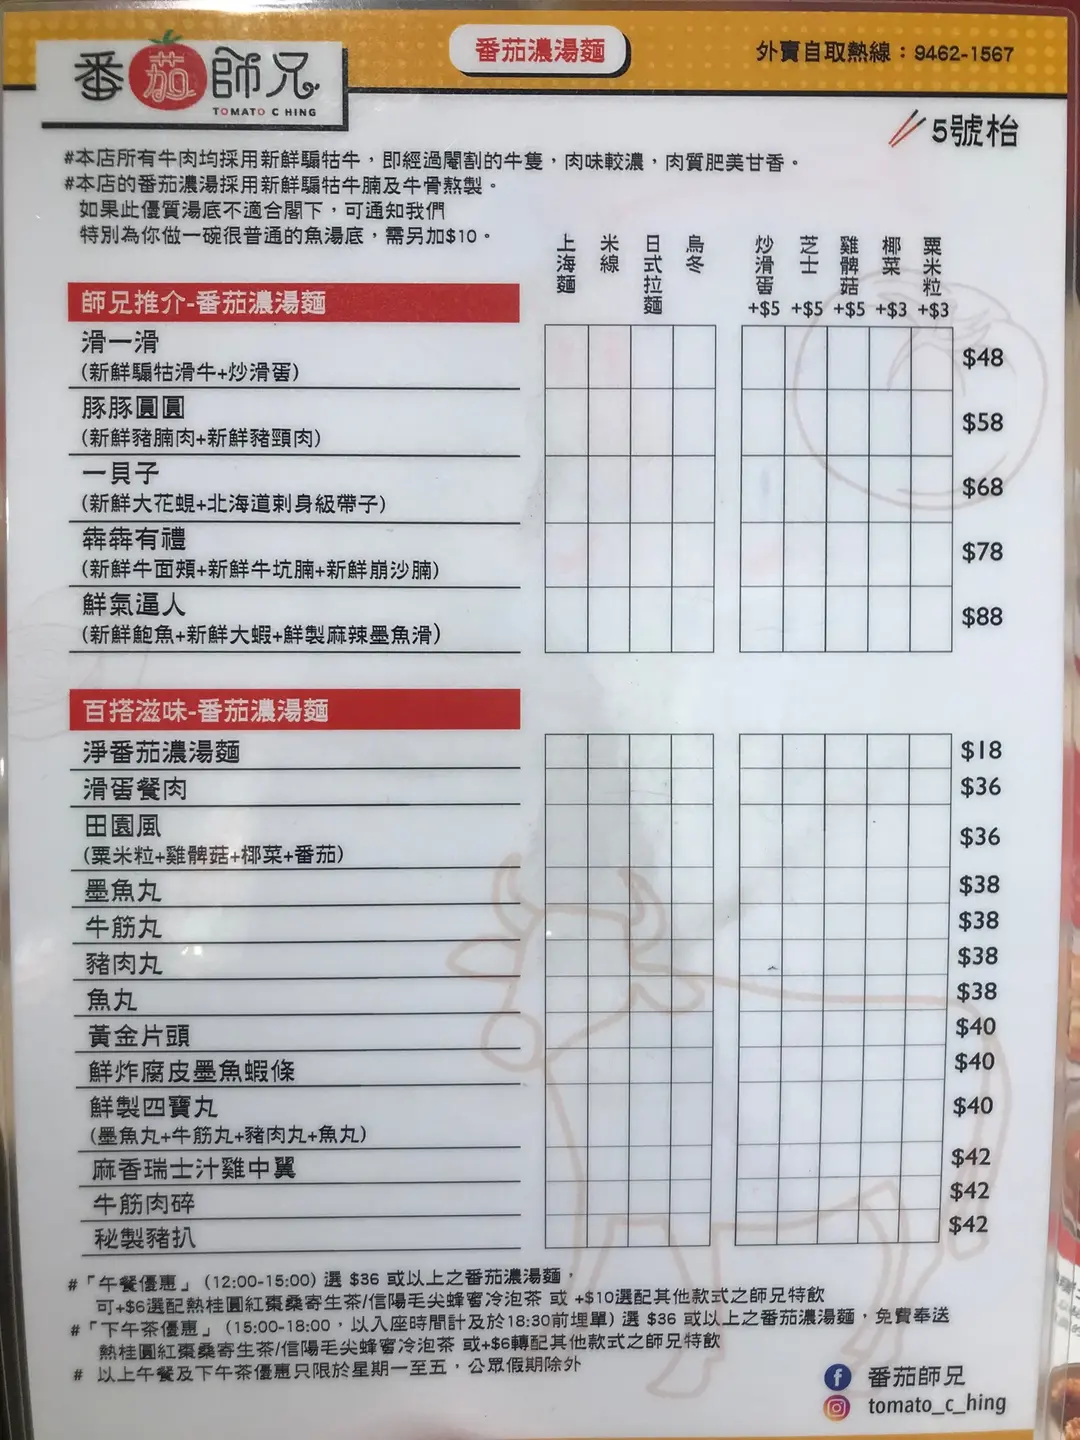 番茄師兄
TOMATO C HING
番茄濃湯麵
外賣自取熱線：9462-1567
5號枱
#本店所有牛肉均採用新鮮騸牯牛，即經過閹割的牛隻，肉味較濃，肉質肥美甘香。
#本店的番茄濃湯採用新鮮騸牯牛腩及牛骨熬製。
如果此優質湯底不適合閣下，可通知我們
特別為你做一碗很普通的魚湯底，需另加$10。
上海麵 米線 日式拉麵 烏冬 炒滑蛋 芝士 雞髀菇 椰菜 粟米粒
+$5 +$5 +$5 +$3 +$3
師兄推介-番茄濃湯麵
滑一滑
(新鮮騸牯滑牛+炒滑蛋) $48
豚豚圓圓
(新鮮豬腩肉+新鮮豬頸肉) $58
一貝子
(新鮮大花蜆+北海道刺身級帶子) $68
犇犇有禮
(新鮮牛面頰+新鮮牛坑腩+新鮮崩沙腩) $78
鮮氣逼人
(新鮮鮑魚+新鮮大蝦+鮮製麻辣墨魚滑) $88
百搭滋味-番茄濃湯麵
淨番茄濃湯麵 $18
滑蛋餐肉 $36
田園風
(粟米粒+雞髀菇+椰菜+番茄) $36
墨魚丸 $38
牛筋丸 $38
豬肉丸 $38
魚丸 $38
黃金片頭 $40
鮮炸腐皮墨魚蝦條 $40
鮮製四寶丸
(墨魚丸+牛筋丸+豬肉丸+魚丸) $40
麻香瑞士汁雞中翼 $42
牛筋肉碎 $42
秘製豬扒 $42
#「午餐優惠」(12:00-15:00) 選 $36 或以上之番茄濃湯麵，
可+$6選配熱桂圓紅棗桑寄生茶/信陽毛尖蜂蜜冷泡茶 或 +$10選配其他款式之師兄特飲
#「下午茶優惠」(15:00-18:00，以入座時間計及於18:30前埋單) 選 $36 或以上之番茄濃湯麵，免費奉送
熱桂圓紅棗桑寄生茶/信陽毛尖蜂蜜冷泡茶 或+$6轉配其他款式之師兄特飲
# 以上午餐及下午茶優惠只限於星期一至五，公眾假期除外
番茄師兄
tomato_c_hing